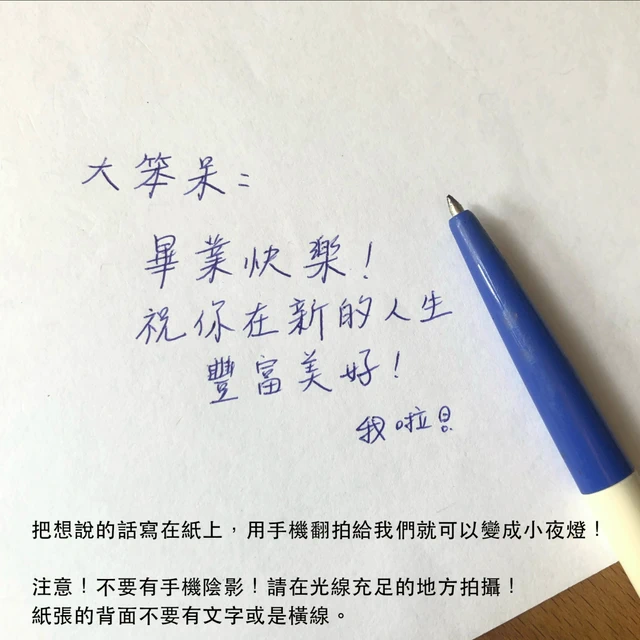 大笨呆：
畢業快樂！
祝你在新的人生
豐富美好！
我啦！
把想說的話寫在紙上，用手機翻拍給我們就可以變成小夜燈！
注意！不要有手機陰影！請在光線充足的地方拍攝！
紙張的背面不要有文字或是橫線。